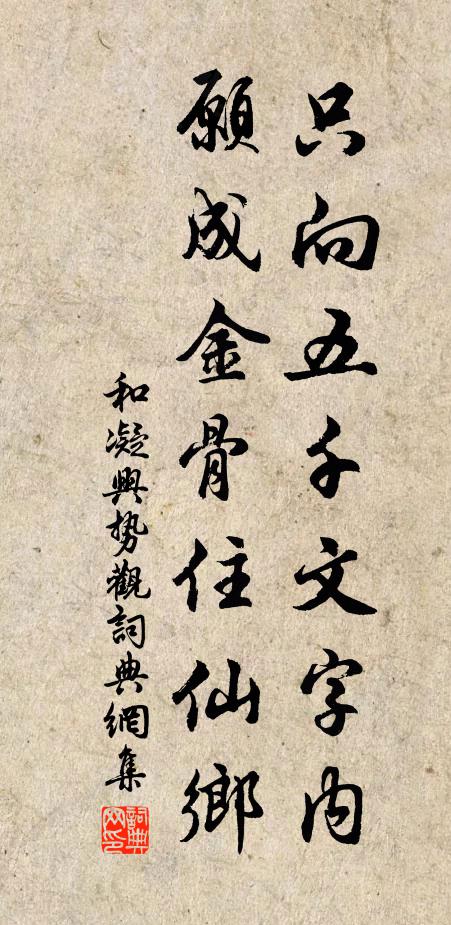 只向五千文字内
願成金骨住仙鄉
和凝興势觀詞典網集
詞典网印